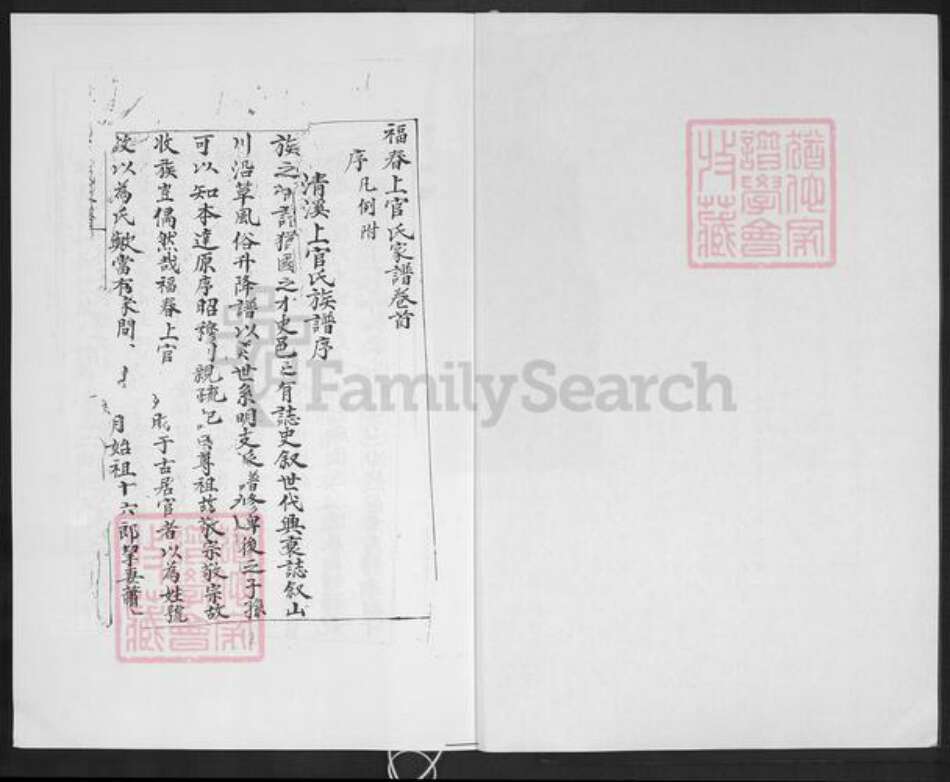 福春上官氏家譜卷首
序 凡例附
清溪上官氏族譜序
族之有譜猶國之有史邑之有誌史叙世代興衰誌叙山
川沿革風俗升降譜以 世系明支 譜修俾後之子孫
可以知本達原序昭穆 親疏 尊祖 敬宗敬宗故
收族豈偶然哉福春上官 于古居官者以為姓號
以為氏 當有家問 始祖十六郎 妻蕭
猶他家譜學會收藏
猶他家譜學會收藏
FamilySearch